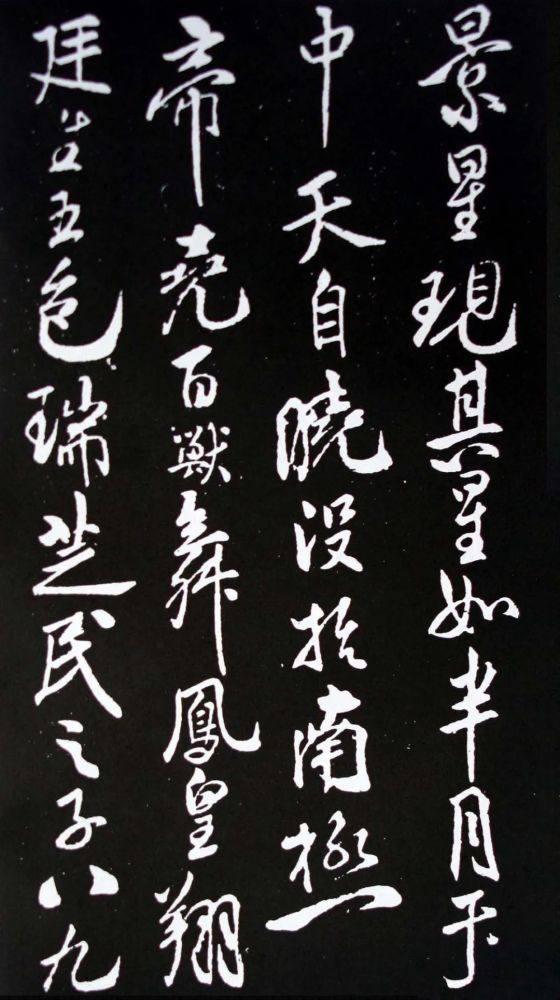 景星現其星如半月于
中天自曉没於南極
帝堯百獸舞鳳皇翔
廷生五色瑞芝民之子八九